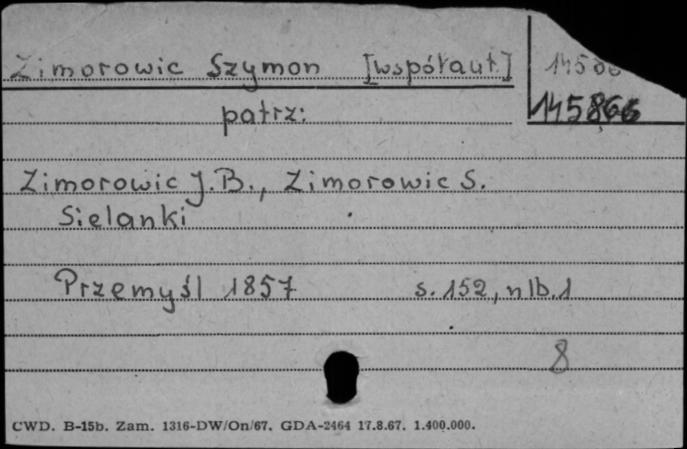 Zimorowic Szymon [współaut.]
145866
patrz:
Zimorowic J.B., Zimorowic S.
Sielanki
Przemyśl 1857 s. 152, nlb. 1
8
CWD. B-15b. Zam. 1316-DW/On/67. GDA-2464 17.8.67. 1.400.000.